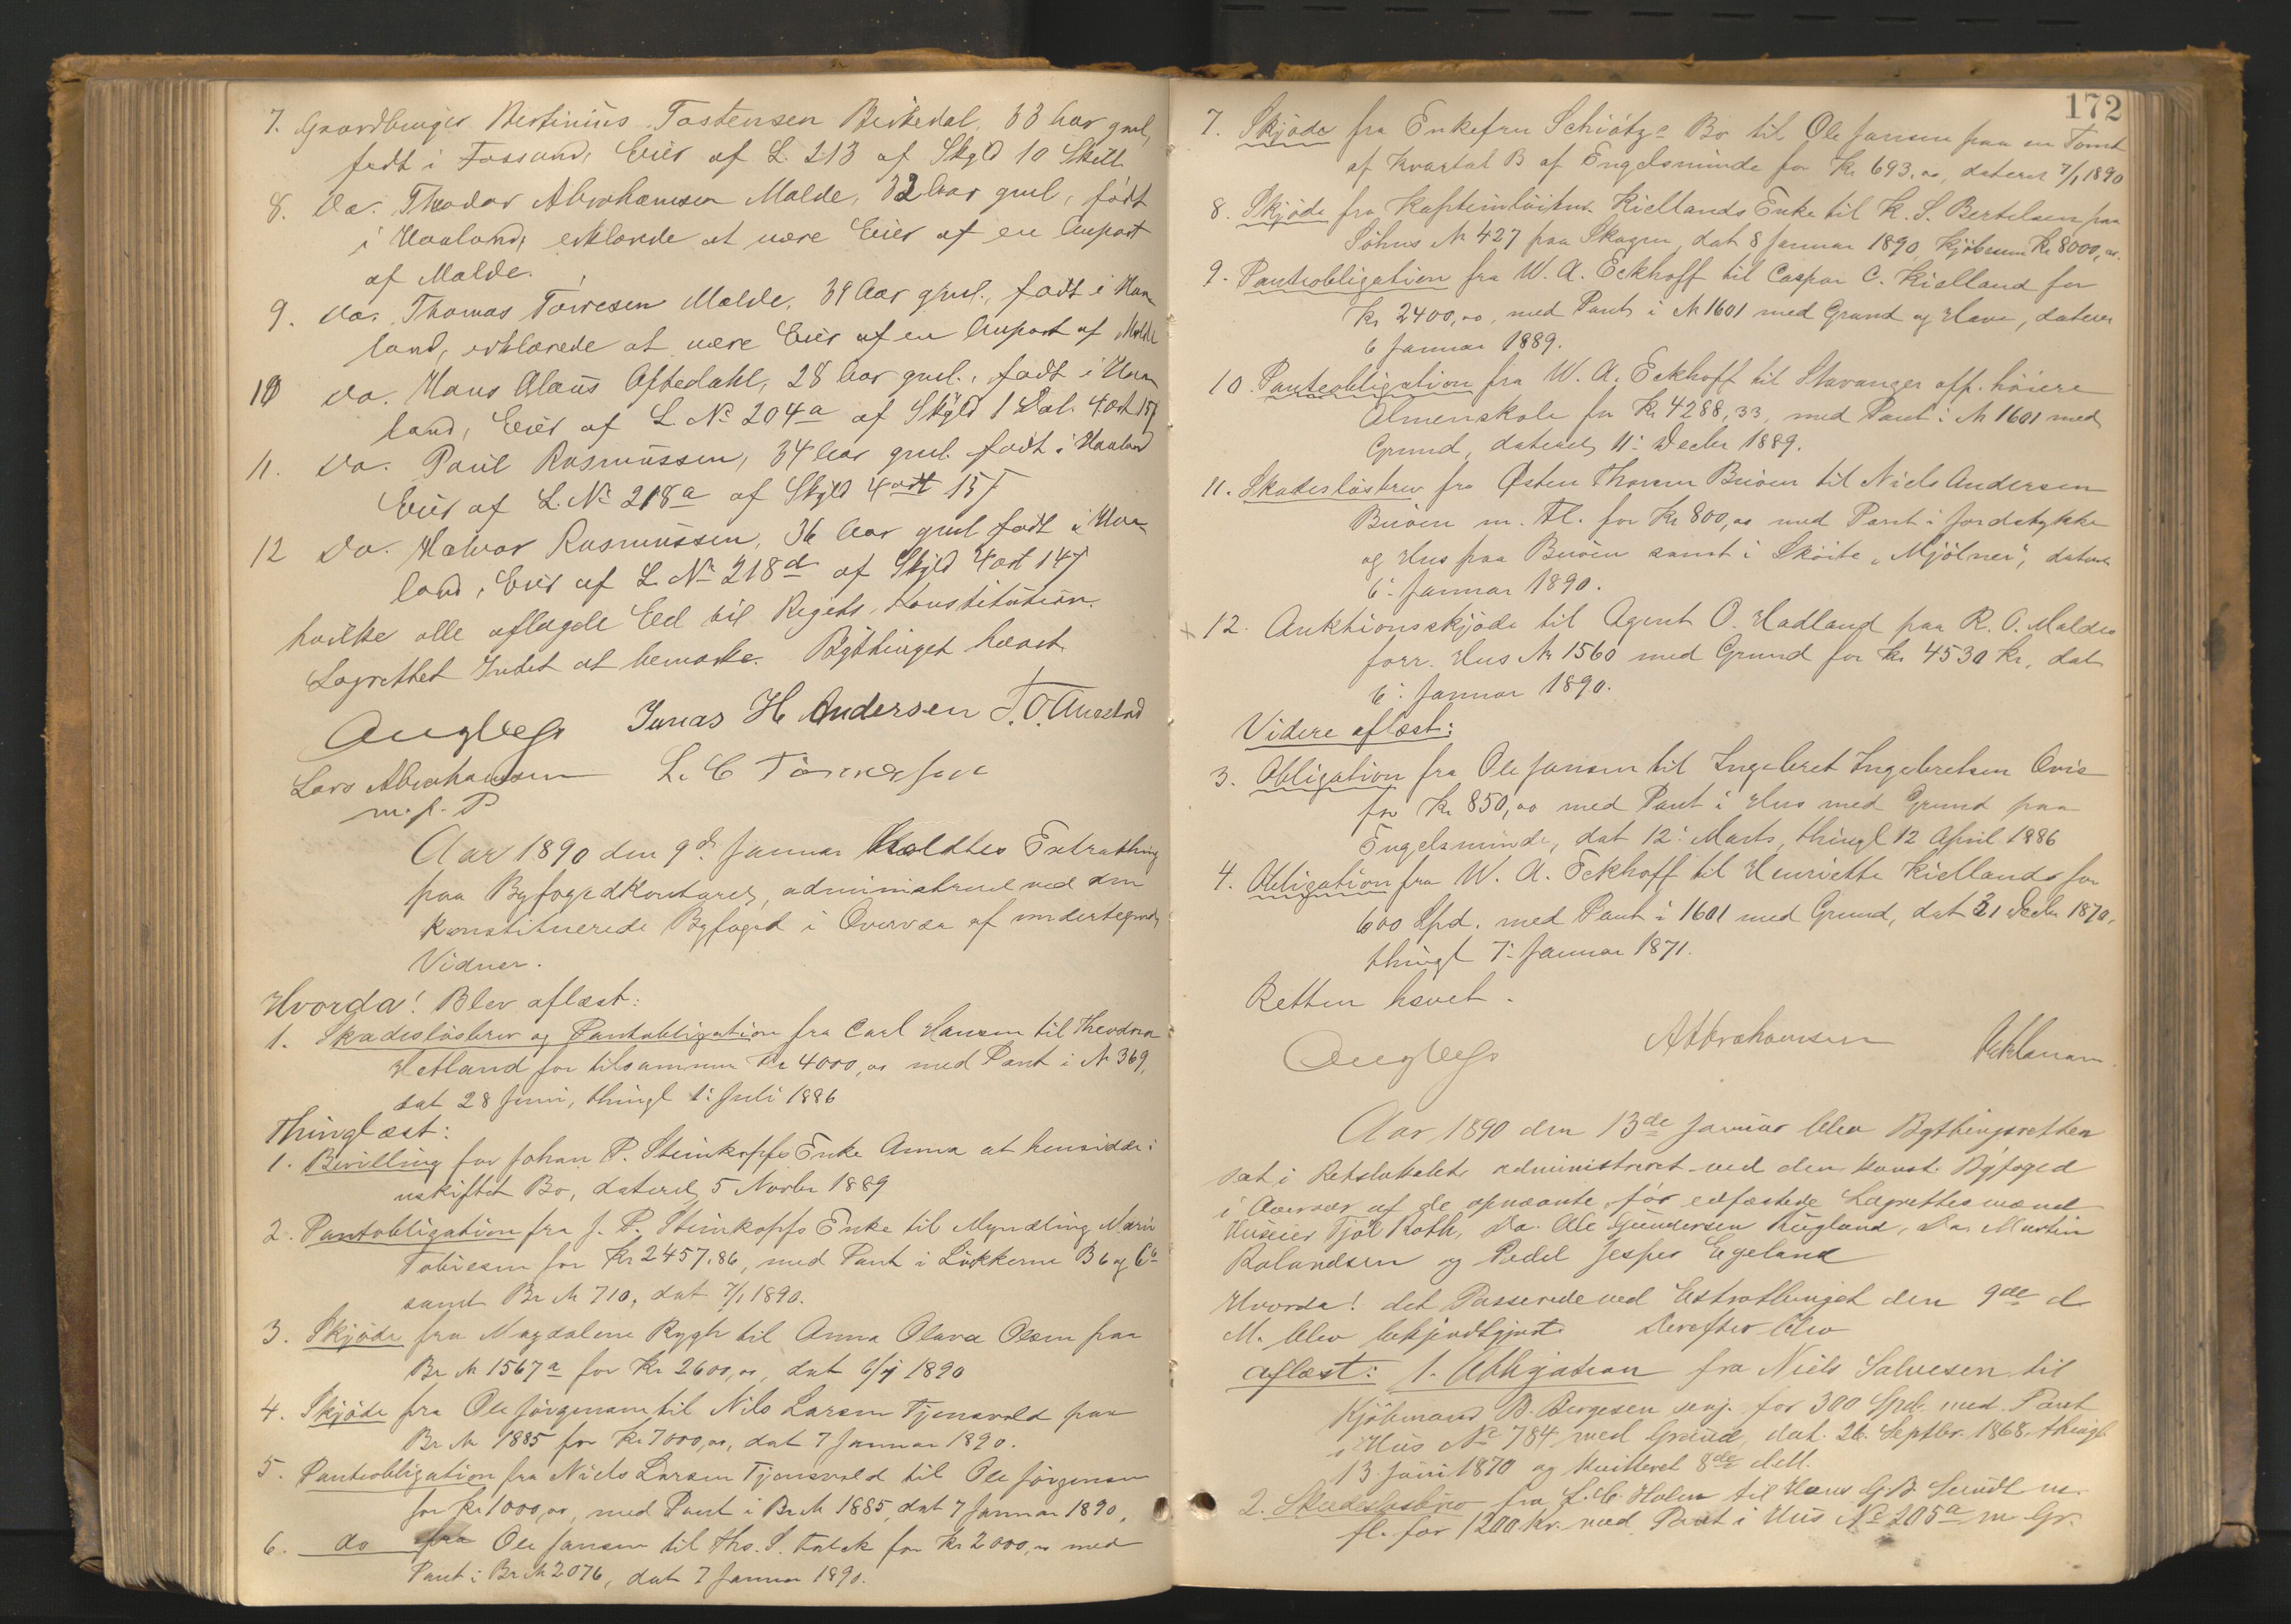 7. Gaardbruger Bertinius Tostensen Birkedal, 33 Aar gml,
født i Fossand, Eier af L. 213 af Skyld 10 Skill
8. Do. Theodor Abrahamsen Malde, 32 Aar gml, født
i Haaland, erklærede at være Eier af en Anpart
af Malde.
9. Do. Thomas Torresen Malde, 39 Aar gml., født i Haa
land, erklærede at være Eier af en Anpart af Malde
10 Do. Hans Claus Aftedahl, 28 Aar gml., født i Haa
land, Eier af L. No 204a af Skyld 1 Dal. 4 ort 15
11. Do. Paul Rasmussen, 34 Aar gml. født i Haaland
Eier af L. No 218a af Skyld 4 ort 15
12 Do. Halvor Rasmussen, 36 Aar gml født i Haa
land, Eier af L. No 218d af Skyld 4 ort 14
hvilke alle aflagde Ed til Rigets Konstitution.
Lagrettet Intet at bemærke. Bythinget hævet
Jonas H Andersen
Lars Abrahamsen L. C Tönnesen
m. p. P
Aar 1890 den 9de Januar holdtes Extrathing
paa Byfogedkontoret, administreret ved den
konstituerede Byfoged i Overvær af undertegnede
Vidner.
Hvorda! Blev aflæst:
1. Skadesløsbrev og Pantobligation fra Carl Hansen til Theodora
Hetland for tilsammen Kr 4000,00 med Pant i No 369,
dat 28 Juni, thingl 1: Juli 1886
Thinglæst:
1. Bevilling for Johan P. Steinkopfs Enke Anna at hensidde i
uskiftet Bo, dateret 5 Novbr 1889
2. Pantobligation fra J. P. Steinkopfs Enke til Myndling
Tobiesen for Kr 2457.86, med Pant i Løkkerne B 6 og 6b
samt Br No 710, dat 7/1 1890.
3. Skjøde fra Magdalene Rygh til Anna Olava Olsen paa
Br No 1567a for Kr 2600,00, dat 6/1 1890
4. Skjøde fra Ole Jørgensen til Nils Larsen Tjensvold paa
Br No 1885 for Kr 7000,00, dat 7 Januar 1890.
5. Panteobligation fra Niels Larsen Tjensvold til Ole Jörgensen
for Kr 1000,00, med Pant i Br No 1885, dat 7 Januar 1890,
6. do fra Ole Jansen til Ths. S. Falck for Kr 2000,00 med
Pant i Br No 2076, dat 7 Januar 1890.
172
7. Skjöde fra Enkefru Schiøtz's Bo til Ole Jansen paa en Tomt
af Kvartal B af Engelsminde for Kr 693,00, dateret 7/1 1890
8. Skjöde fra Kiellands Enke til K. S. Bertelsen paa
Söhus No 427 paa Skagen, dat 8 Januar 1890, Kjöbesum Kr 8000,00.
9. Panteobligation fra W. A. Eckhoff til Caspar C. Kielland for
Kr 2400,00, med Pant i No 1601 med Grund og Have, dateret
6 Januar 1889.
10. Panteobligation fra W. A. Eckhoff til Stavanger off. höiere
Almenskole for Kr. 4288,33, med Pant i No 1601 med
Grund, dateret 11: Decbr 1889.
11. Skadesløsbrev fra Østen Thorsen Buöen til Niels Andersen
Buöen m. Fl. for Kr 800,00 med Pant i Jordstykke
og Hus paa Buöen samt i Sköite "Mjölner", dateret
6: Januar 1890.
x 12. Auktionsskjöde til Agent O. Hadland paa R. O. Maldes
forr. Hus No 1560 med Grund for Kr 4530 Kr, dat
6: Januar 1890.
Videre aflæst:
3. Obligation fra Ole Jansen til Ingebret Ingebretsen Ovis
for Kr 850,00 med Pant i Hus med Grund paa
Engelsminde, dat 12: Marts, thingl 12 April 1886
4. Obligation fra W. A. Eckhoff til Henriette Kiellands for
600 Spd. med Pant i 1601 med Grund, dat 21 Decbr 1870,
thingl 7: Januar 1871.
Retten hævet.
A Abrahamsen
Aar 1890 den 13de Januar blev Bythingsretten
sat i Retslokalet administreret ved den konst. Byfoged
i Overvær af de opnævnte, før edfæstede Lagrettesmænd
Huseier Tjöl Roth, Do. Ole Gundersen Rugland, Do. Martin
Rolandsen og Pedel Jesper Egeland
Hvorda! det Passerede ved Extrathinget den 9de d
M. blev bekjendtgjort. Derefter blev
aflæst: 1. Obligation fra Niels Salvesen til
Kjöbmand B. Bergesen senj. for 300 Spd. med Pant
i Hus No 784 med Grund, dat. 26. Septbr. 1868. thingl
13. Juni 1870 og kvitteret 8de ds M.
2. Skadesløsbrev fra L. C. Holm til Hans G. B. Sundt m.
fl. for 1200 Kr. med Pant i Hus No 205a m Gr.